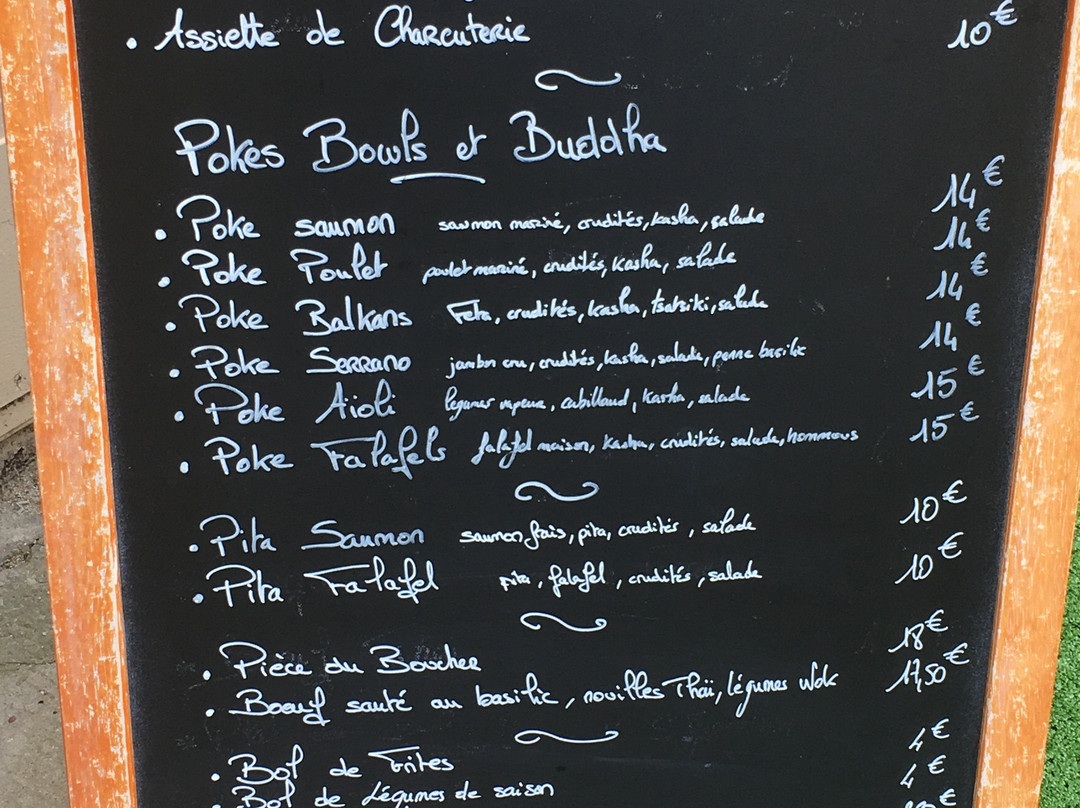 • Assiette de Charcuterie 10€
Pokes Bowls et Buddha
• Poke saumon saumon mariné, crudités, kasha, salade 14€
• Poke Poulet poulet mariné, crudités, kasha, salade 14€
• Poke Balkans Feta, crudités, kasha, tsatsiki, salade 14€
• Poke Serrano jambon cru, crudités, kasha, salade, penne basilic 14€
• Poke Aïoli légumes vapeur, cabillaud, kasha, salade 15€
• Poke Falafels falafel maison, kasha, crudités, salade, hommous 15€
• Pita Saumon saumon frais, pita, crudités, salade 10€
• Pita Falafel Pita, falafel, crudités, salade 10€
• Pièce du Boucher 18€
• Boeuf sauté au basilic, nouilles Thaï, légumes Wok 17,50€
• Bol de Frites 4€
• Bol de Légumes de saison 4€